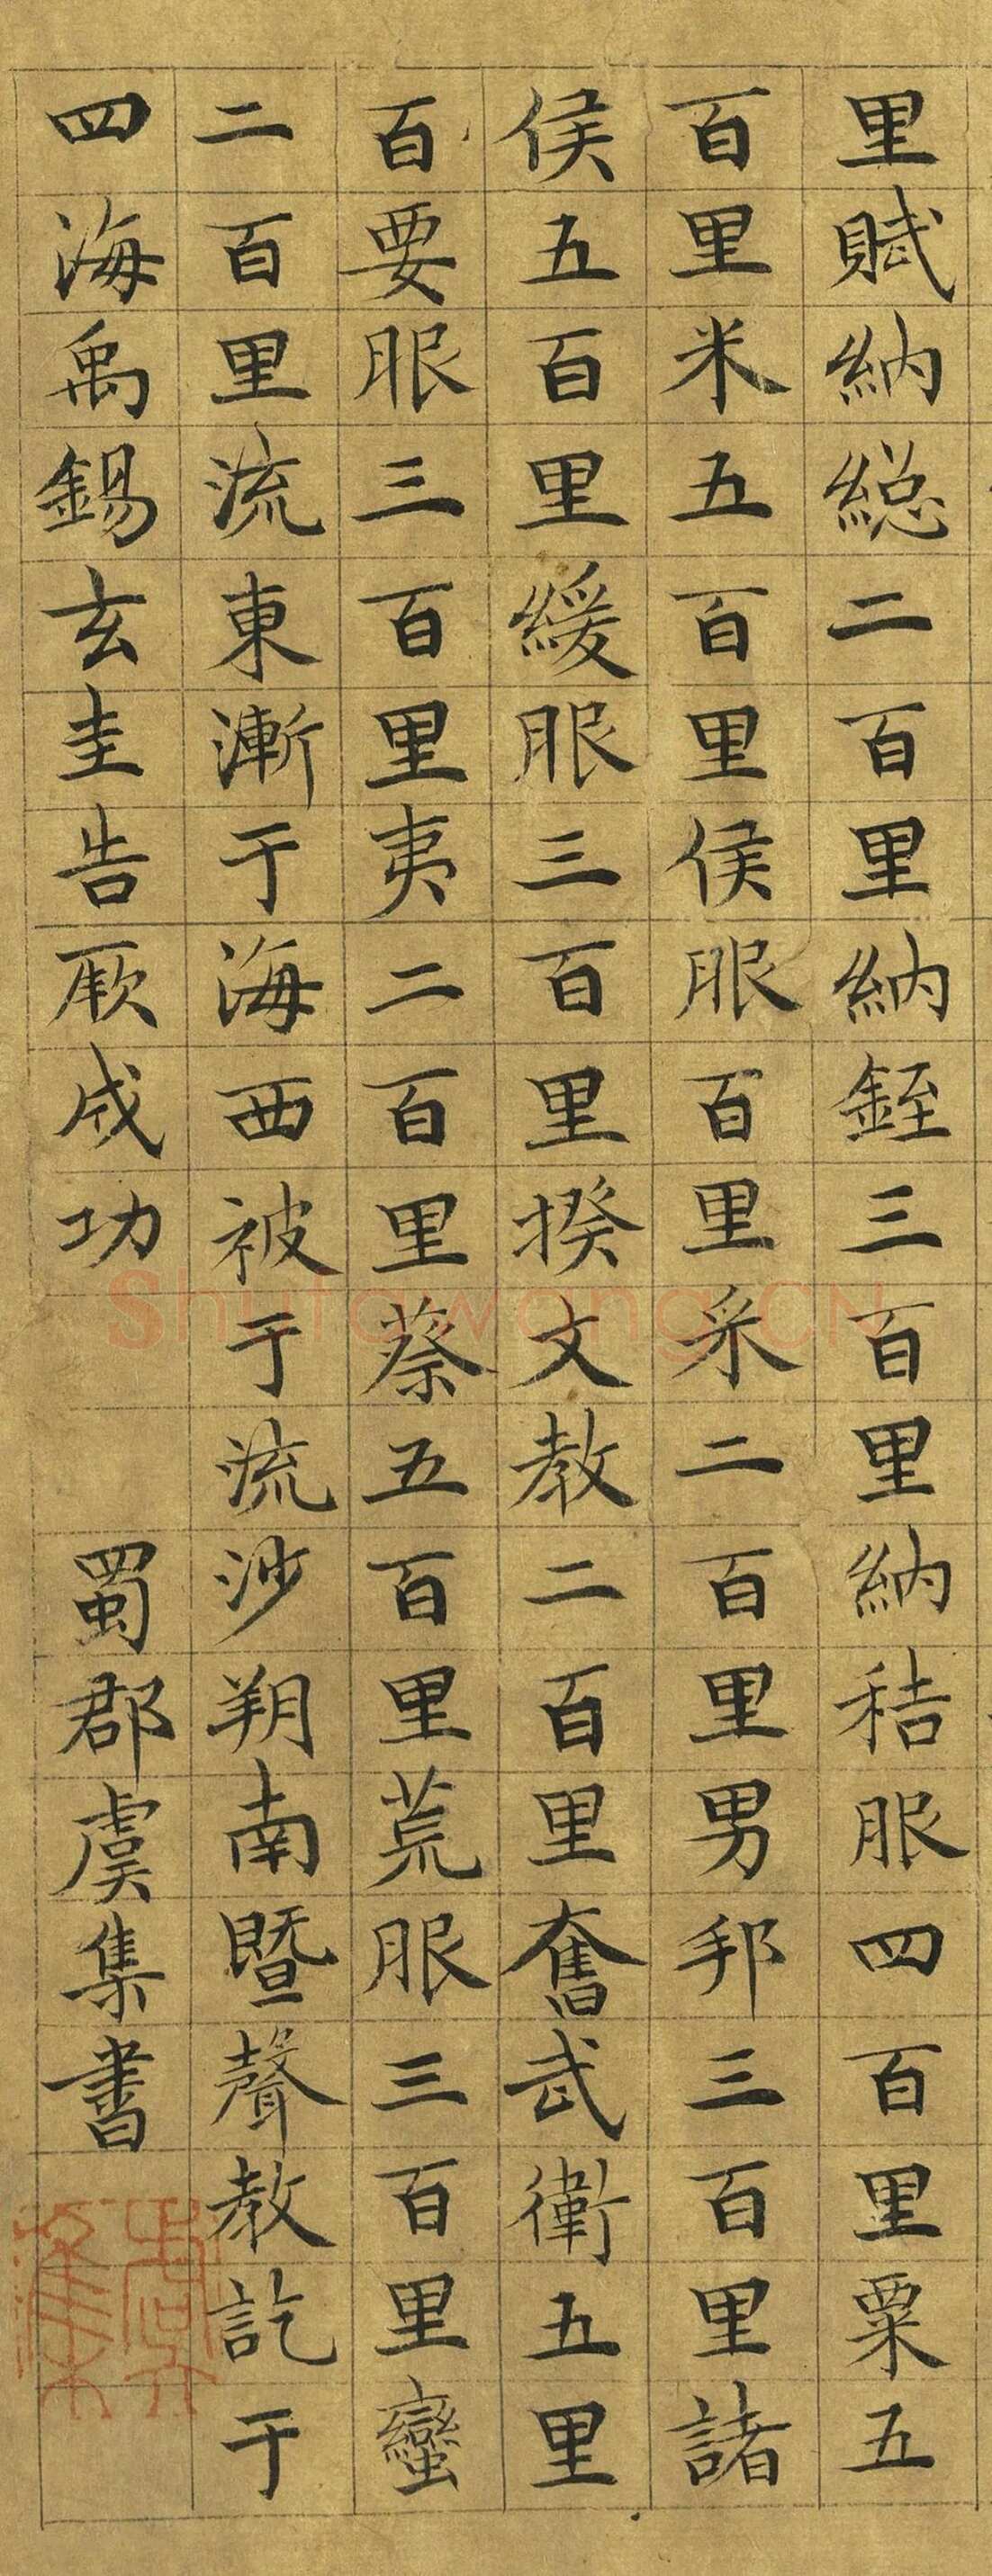 里賦納緫二百里納銍三百里納秸服四百里粟五
百里米五百里侯服百里采二百里男邦三百里諸
侯五百里緩服三百里揆文教二百里奮武衛五里
百要服三百里夷二百里蔡五百里荒服三百里蠻
二百里流東漸于海西被于流沙朔南曁聲教訖于
四海禹錫玄圭告厥成功 蜀郡虞集書
Shufawang.CN